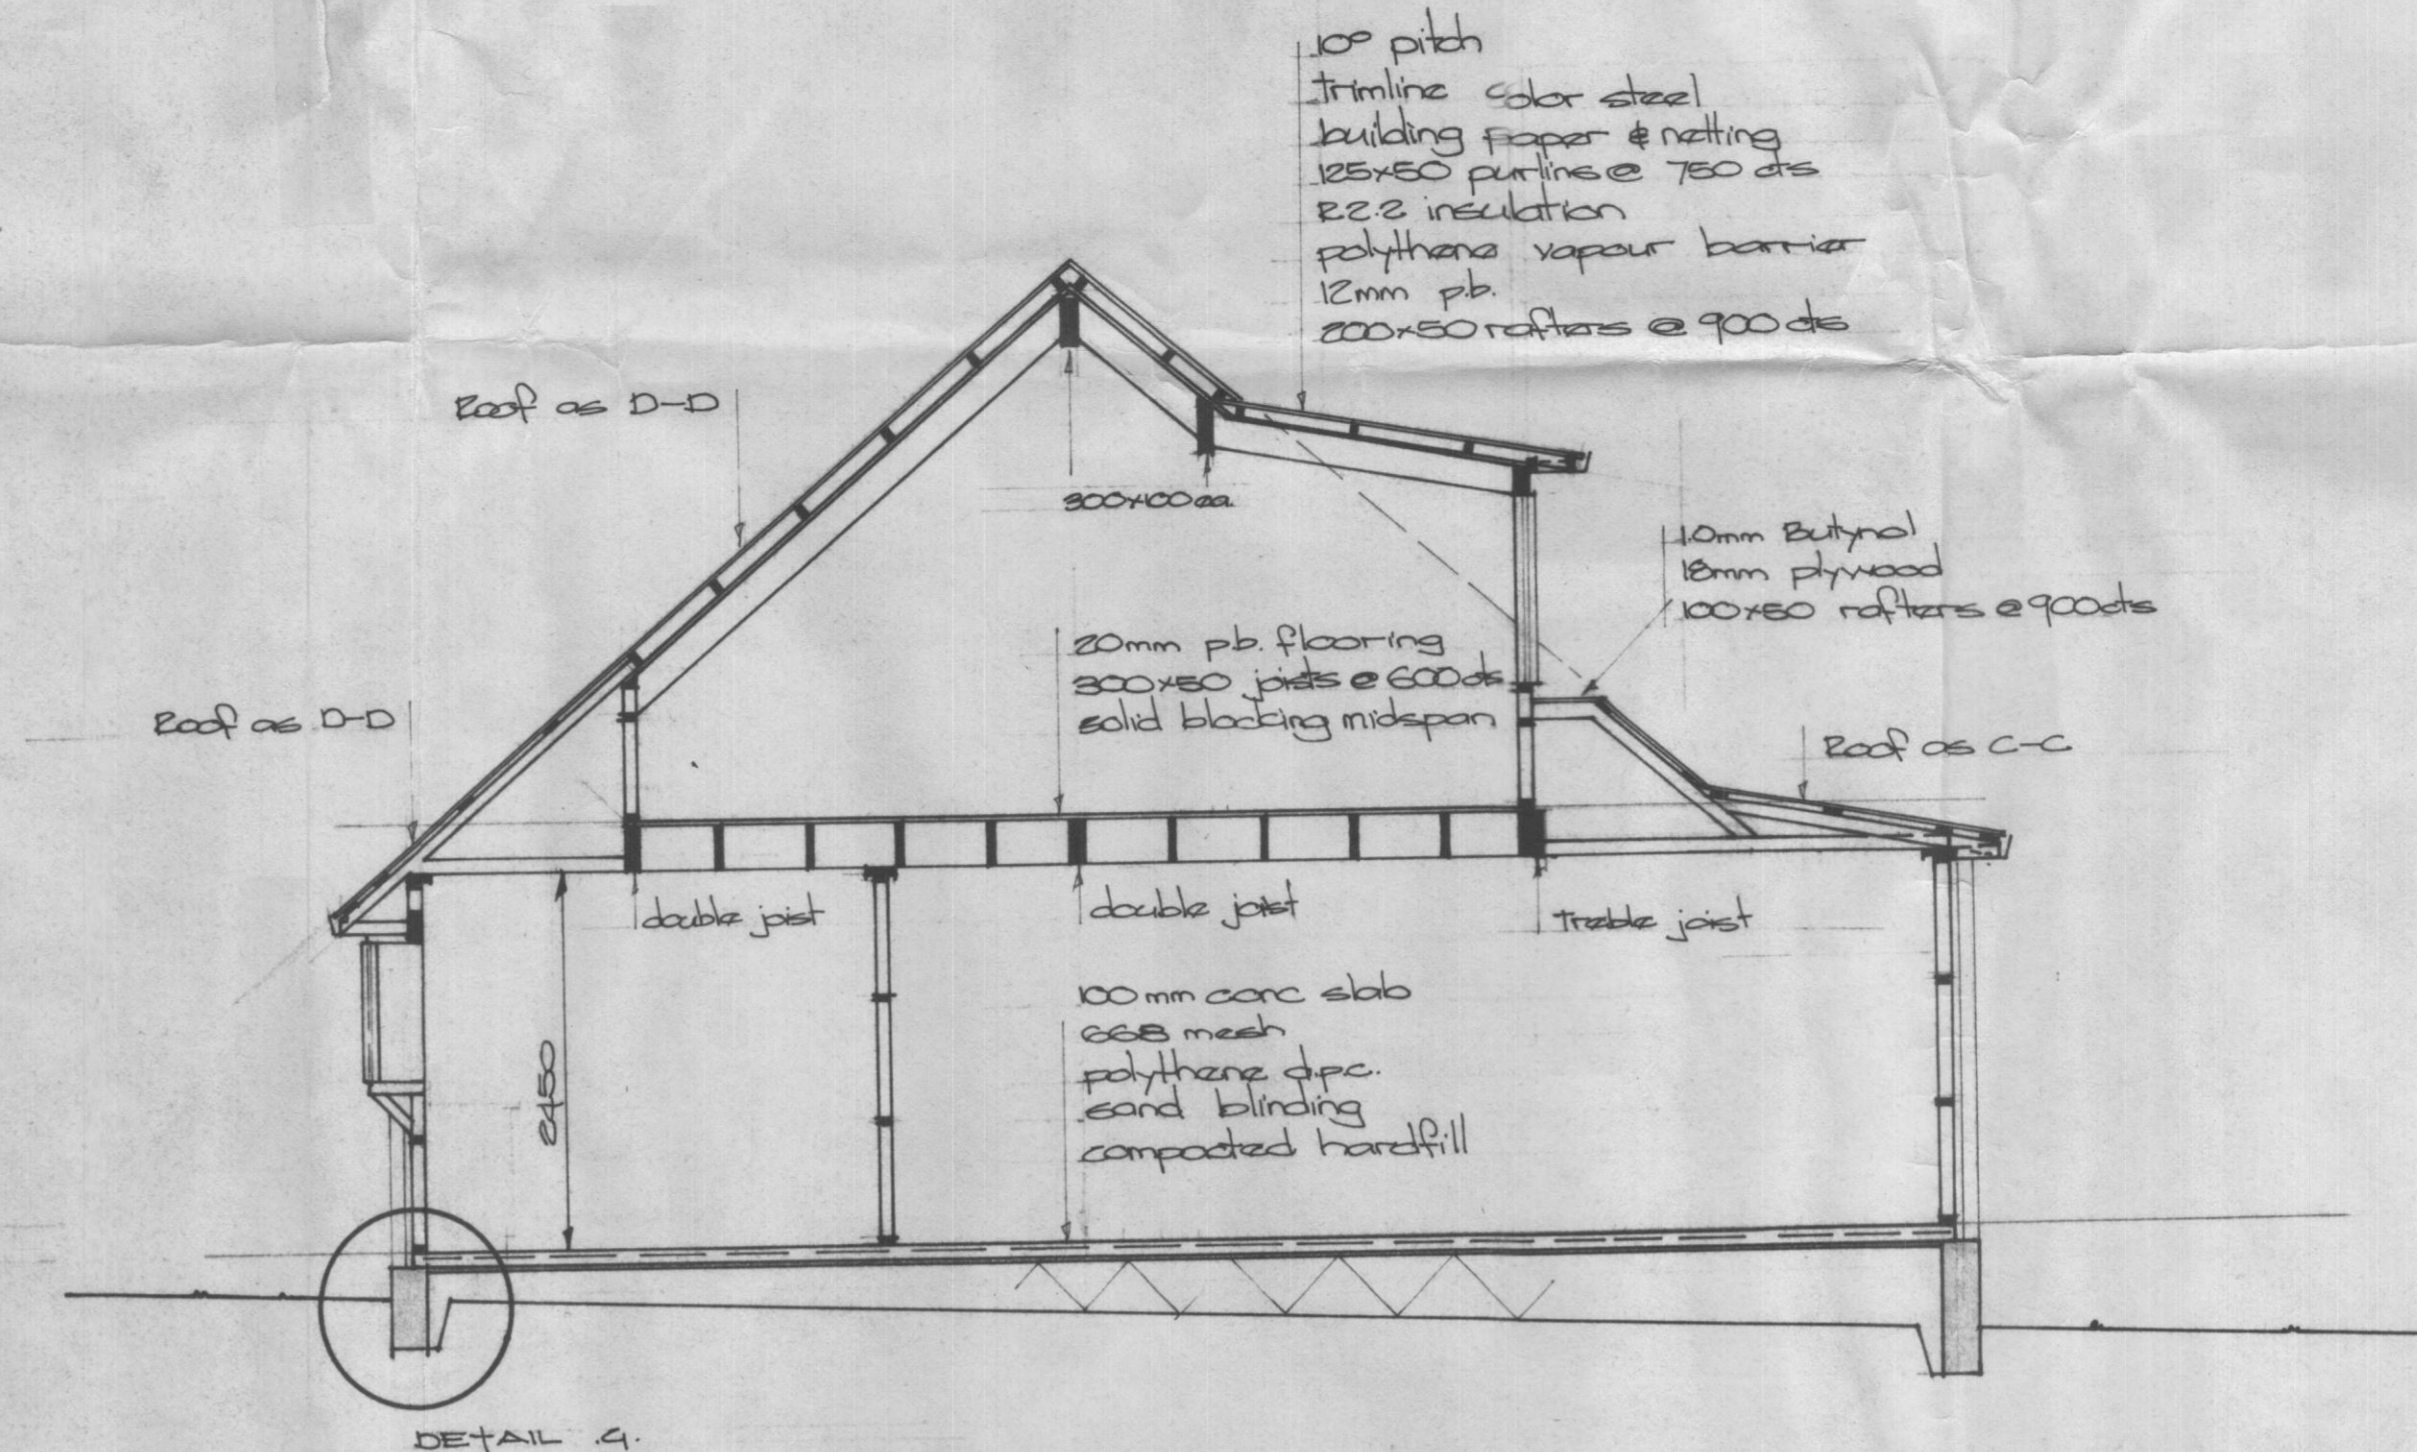 10° pitch
trimline color steel
building paper & netting
125x50 purlins @ 750 cts
R2.2 insulation
polythene vapour barrier
12mm p.b.
200x50 rafters @ 900 cts
Roof as D-D
300x100 ea.
1.0mm Butynol
18mm plywood
100x50 rafters @ 900 cts
20mm p.b. flooring
300x50 joists @ 600 cts
solid blocking midspan
Roof as D-D
Roof as C-C
double joist
double joist
Treble joist
2450
100mm conc slab
668 mesh
polythene d.p.c.
sand blinding
compacted hardfill
DETAIL .G.